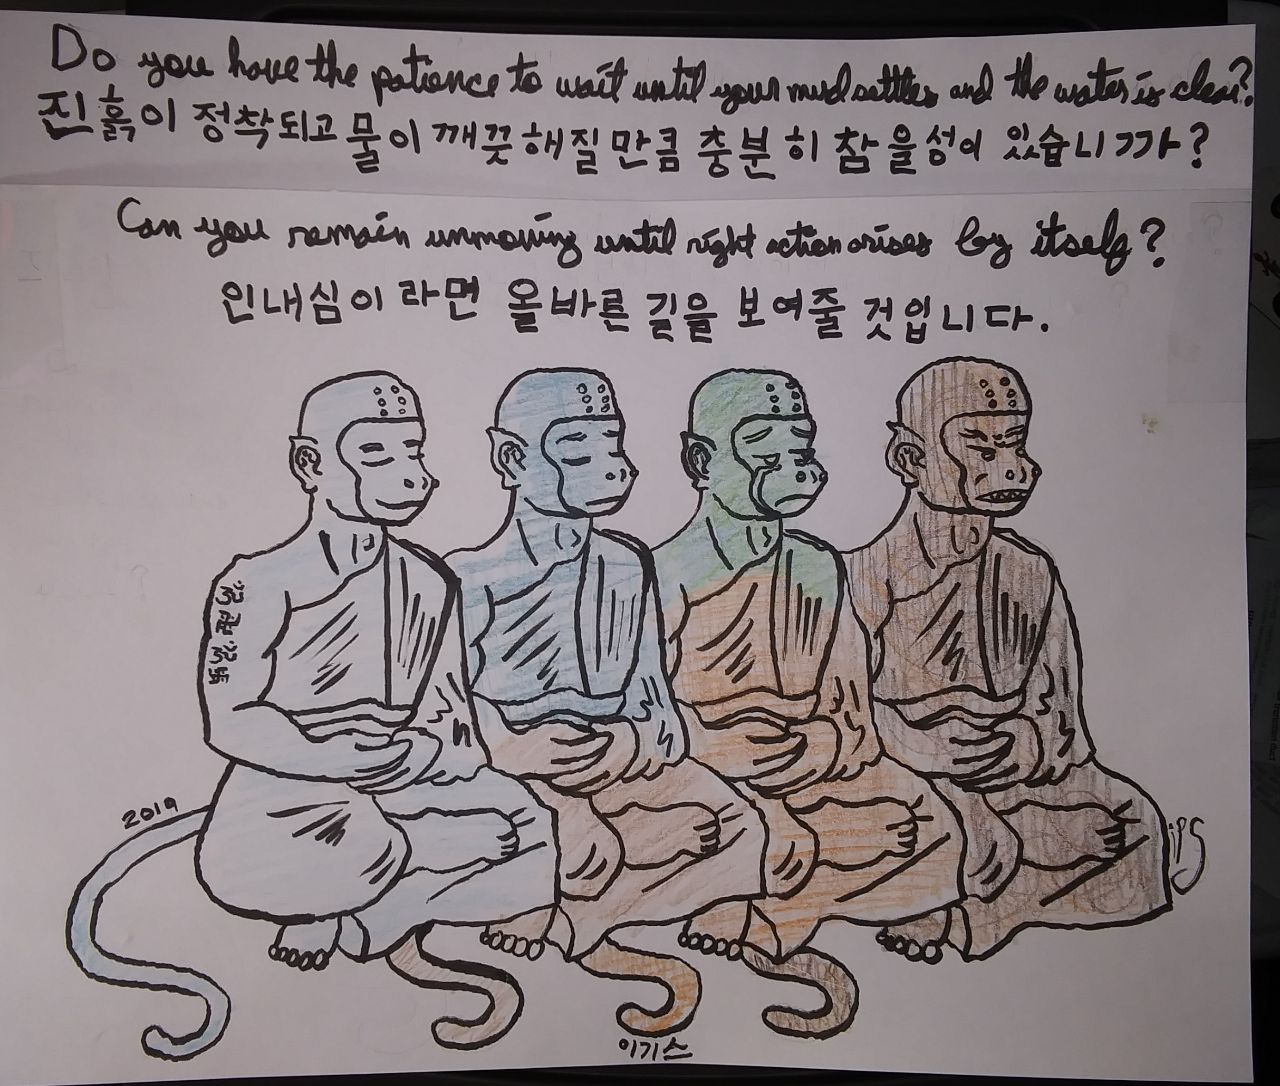 Do you have the patience to wait until your mud settles and the water is clear?
진흙이 정착되고 물이 깨끗해질만큼 충분히 참을성이 있습니까?
Can you remain unmoving until right action arises by itself?
인내심이라면 올바른 길을 보여줄 것입니다.
2019
iPS
이기스